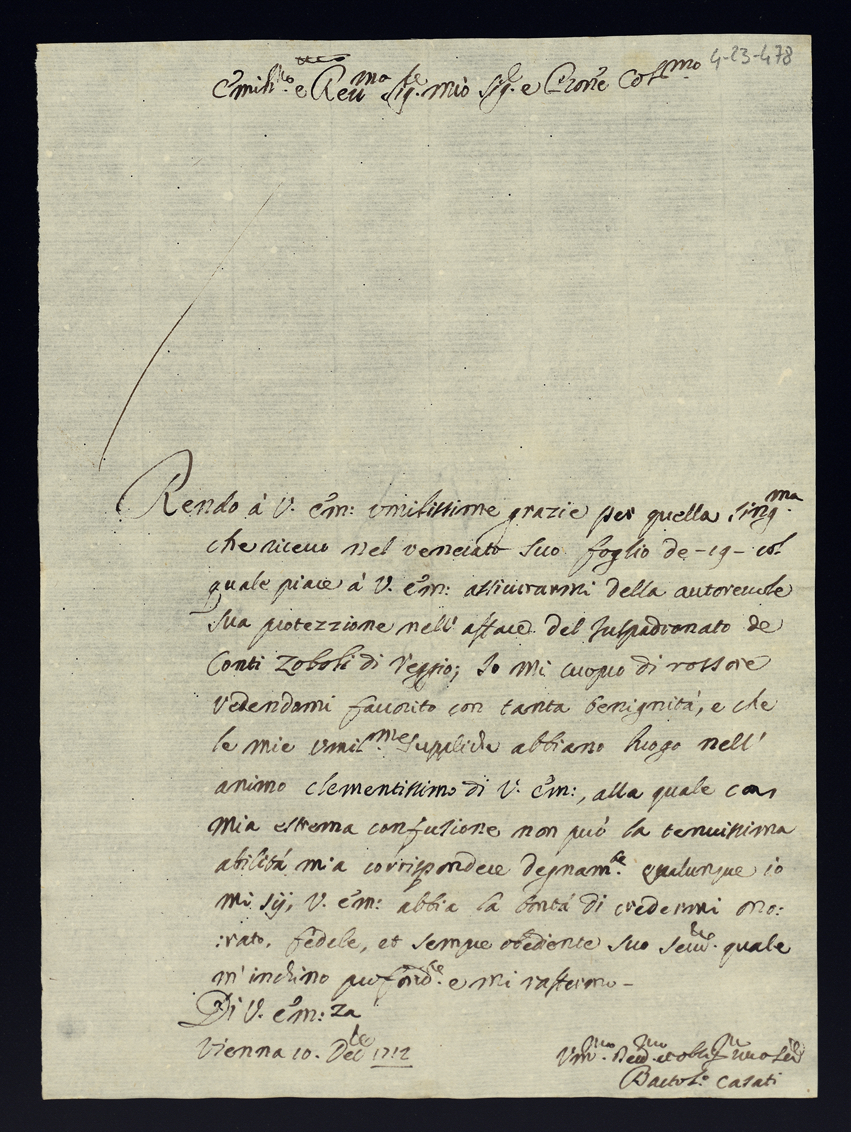 4-23-478
Em.mo e Rev.mo Sig.re mio Sig.e e Prone Col.mo
Rendo à V. Em: umilissime grazie per quella sing.ma
che riceuo nel veneratо suo foglio de -19- col
quale piace à V. Em: assicurarmi della autoreuole
sua protezzione nell' affare del Juspadronato de
Conti Zoboli di Reggio; Io mi cuopro di rossore
vedendomi fauorito con tanta benignità, e che
le mie vmil.me suppliche abbiano luogo nell'
animo clementissimo di V. Em:, alla quale con
mia estrema confusione non può la tenuissima
abilità mia corrispondere degnam.te qualunque io
mi sij, V. Em: abbia la bontà di credermi ono:
:rato, fedele, et sempre obediente suo seru.re quale
m'inchino profond.te e mi raffermo -
Di V. Em:za
Vienna 10. Dec.bre 1712
Vm.mo Deu.mo et obli.mo
Bartol.o Casati